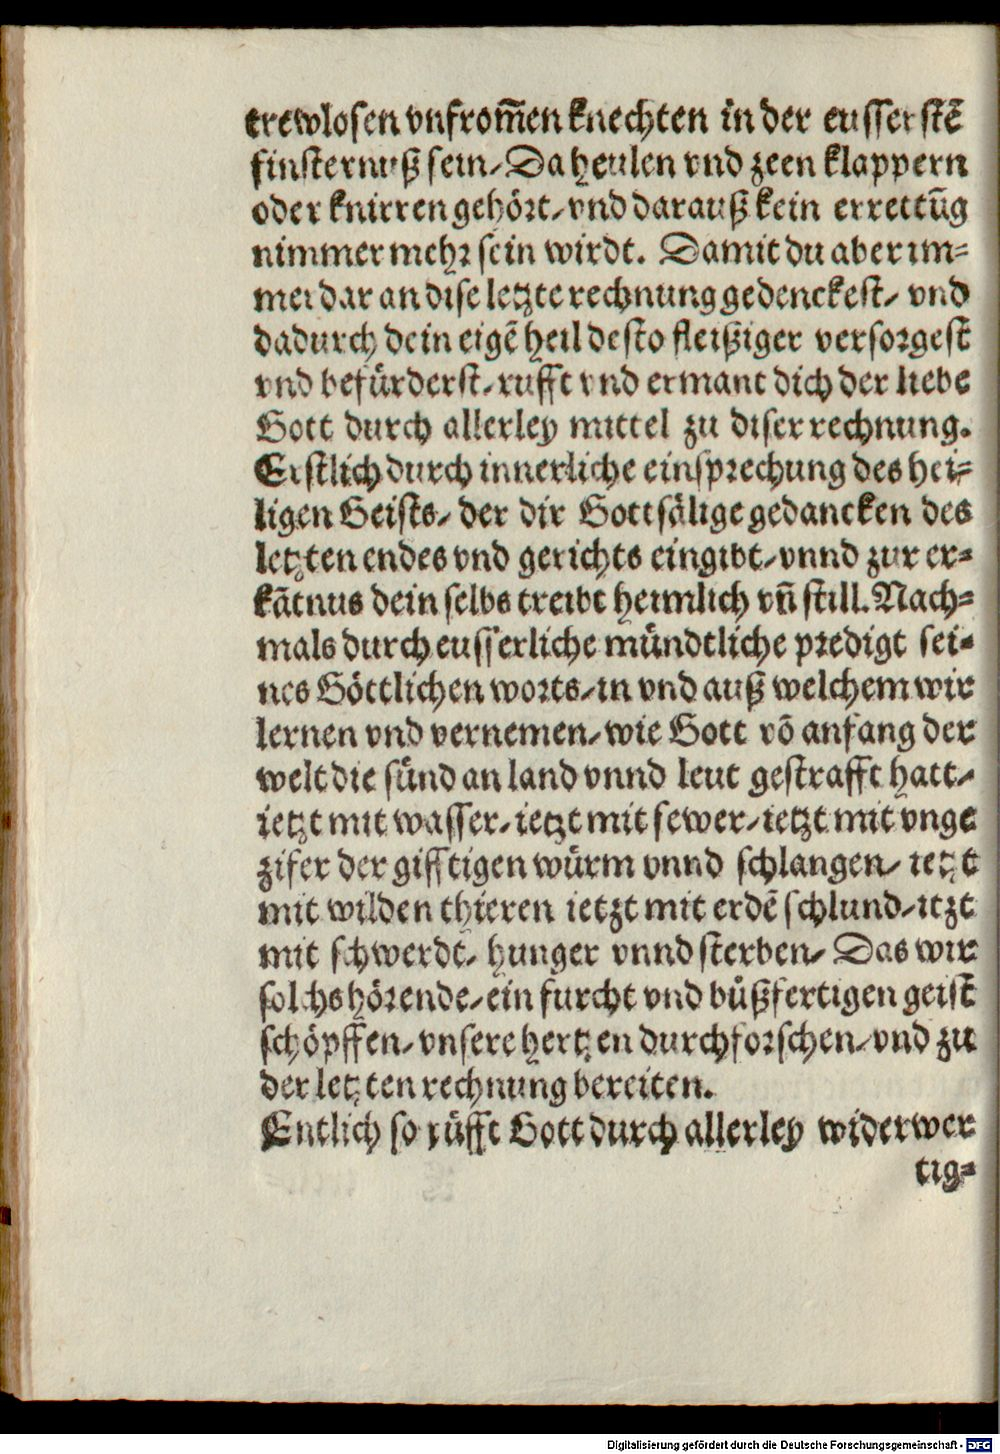 trewlosen vnfrom̃en knechten in der eusserstẽ
finsternuß sein/ Da heulen vnd zeen klappern
oder knirren gehört/ vnd darauß kein errettũg
nimmermehr sein wirdt. Damit du aber im-
merdar an dise letzte rechnung gedenckest/ vnd
dadurch dein eigẽ heil desto fleißiger versorgest
vnd befürderst/ rufft vnd ermant dich der liebe
Gott durch allerley mittel zu diser rechnung.
Erstlich durch innerliche einsprechung des hei-
ligen Geists/ der dir Gottsälige gedancken des
letzten endes vnd gerichts eingibt/ vnnd zur er-
kãtnus dein selbs treibt heimlich vñ still. Nach-
mals durch eusserliche mündtliche predigt sei-
nes Göttlichen worts/ in vnd auß welchem wir
lernen vnd vernemen/ wie Gott võ anfang der
welt die sünd an land vnnd leut gestrafft hatt/
ietzt mit wasser/ ietzt mit fewer/ ietzt mit vnge
zifer der gifftigen würm vnnd schlangen/ ietzt
mit wilden thieren ietzt mit erdẽ schlund/ itzt
mit schwerdt/ hunger vnnd sterben/ Das wir
solchs hörende/ ein furcht vnd bůßfertigen geist
schöpffen/ vnsere hertzen durchforschen/ vnd zu
der letzten rechnung bereiten.
Entlich so rüfft Gott durch allerley widerwer
tig-
Digitalisierung gefördert durch die Deutsche Forschungsgemeinschaft - DFG